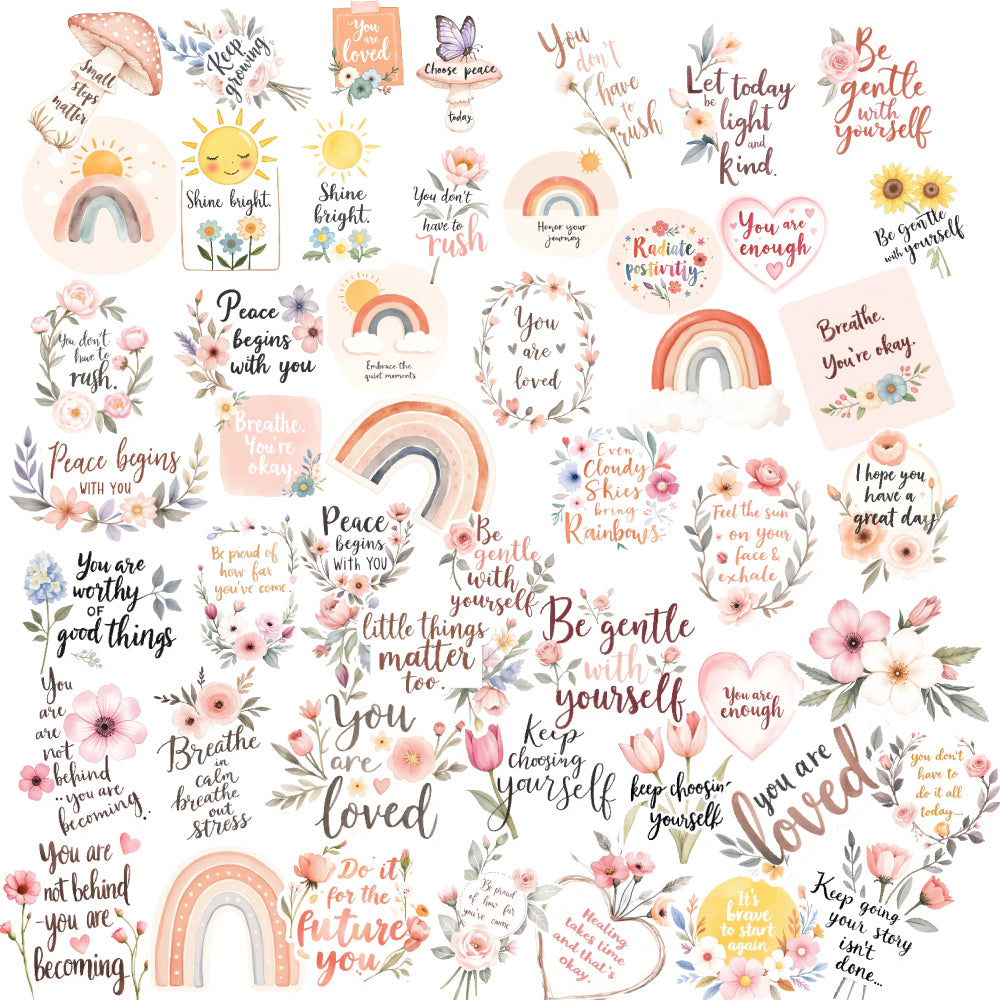 Small
steps
matter
Keep
growing
You
are
loved
Choose peace
today.
You
don't
have
to
rush
Let today
be
light
and
kind.
Be
gentle
with
yourself
Shine bright.
Shine
bright.
You don't
have to
rush
Honor your
journey
Radiate
postivrtiy
You are
enough
Be Gentle
with yourself
You don't
have to
rush.
Peace
begins
with you
Embrace the
quiet moments
You
are
loved
Breathe.
You're okay.
Peace begins
WITH YOU
Breathe.
You're
okay.
Even
Cloudy
Skies
bring
Rainbows
Feel the sun
on your
face &
exhale
I hope you
have a
great day
You are
worthy
OF
good things
Be proud of
how far
you've come.
Peace
begins
WITH YOU
Be
gentle
with
yourself
little things
matter
too.
Be gentle
with
yourself
You are
enough
You
are
not
behind
..you are
becoming.
Breathe
in
calm
breathe
out
stress
You
are
loved
Keep
choosing
yourself
keep choosin'
yourself
you are
loved
you don't
have to
do it all
today...
You are
not behind
you are
becoming
Do it
for the
future
you
Be proud
of how far
you've come
Healing
takes time
and that's
okay.
It's
brave
to start
again
Keep going
your story
isn't
done...